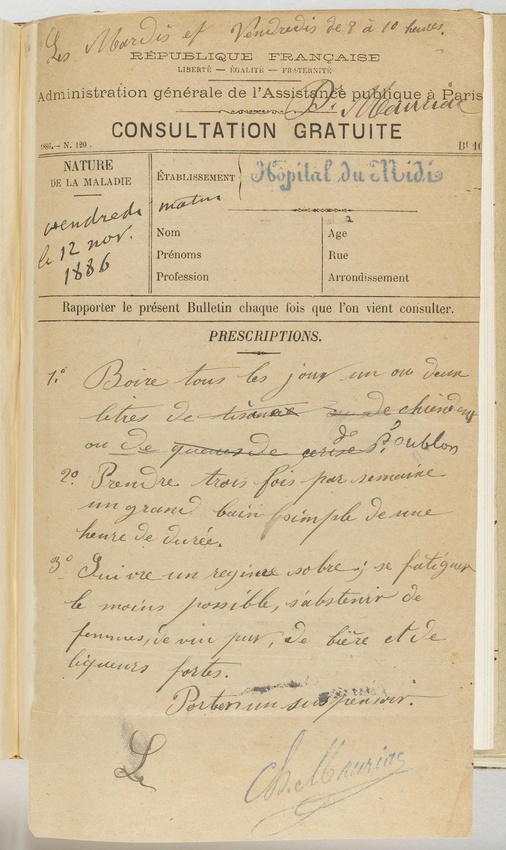 Les Mardis et Vendredis de 8 à 10 heures.
RÉPUBLIQUE FRANÇAISE
LIBERTÉ — ÉGALITÉ — FRATERNITÉ
Administration générale de l'Assistance publique à Paris
Dr. Mauriac
CONSULTATION GRATUITE
N. 120.
NATURE
DE LA MALADIE
ÉTABLISSEMENT
Hôpital du Midi
vendredi matin
le 12 nov.
1886
Nom
Age
Prénoms
Rue
Profession
Arrondissement
Rapporter le présent Bulletin chaque fois que l'on vient consulter.
PRESCRIPTIONS.
1.° Boire tous les jours un ou deux
litres de tisane de chiendent
ou de queues de cerise de houblon
2.° Prendre trois fois par semaine
un grand bain simple de une
heure de durée.
3° Suivre un regime sobre; se fatiguer
le moins possible, s'abstenir de
femmes, de vin pur, de bière et de
liqueurs fortes.
Porter un suspensoir.
Le
Ch. Mauriac